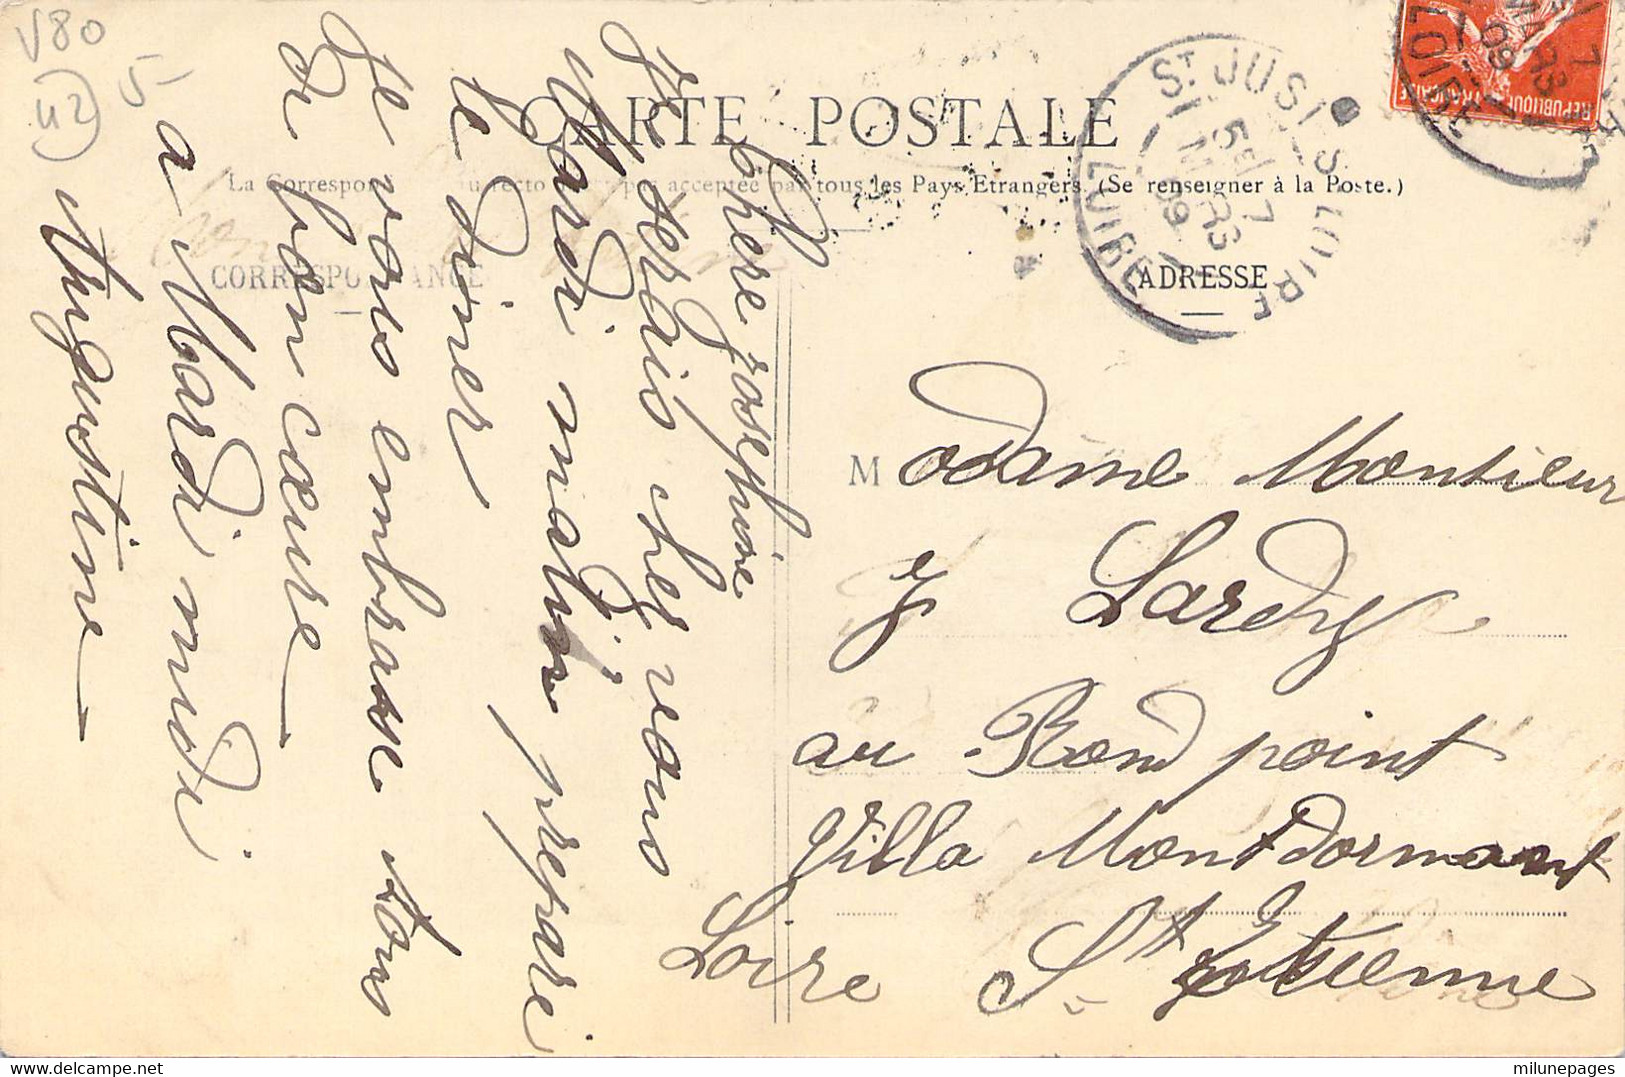 V80
42) 5-
CARTE POSTALE
La Correspon recto acceptée par tous les Pays Etrangers. (Se renseigner à la Poste.)
CORRESPONDANCE
ADRESSE
ST JUST S LOIRE
5 7
MARS
09
LOIRE
7
MARS
09
LOIRE
REPUBLIQUE FRANÇAISE
Chere Josephine
Je serais chez vous
Mardi matin prepare
le diner
Je vous embrasse tous
de bon cœure
a Mardi midi
Augustine
Madame Monsieur
J Lardy
au Rond point
Villa Mont Dormant
St Etienne
Loire
milunepages